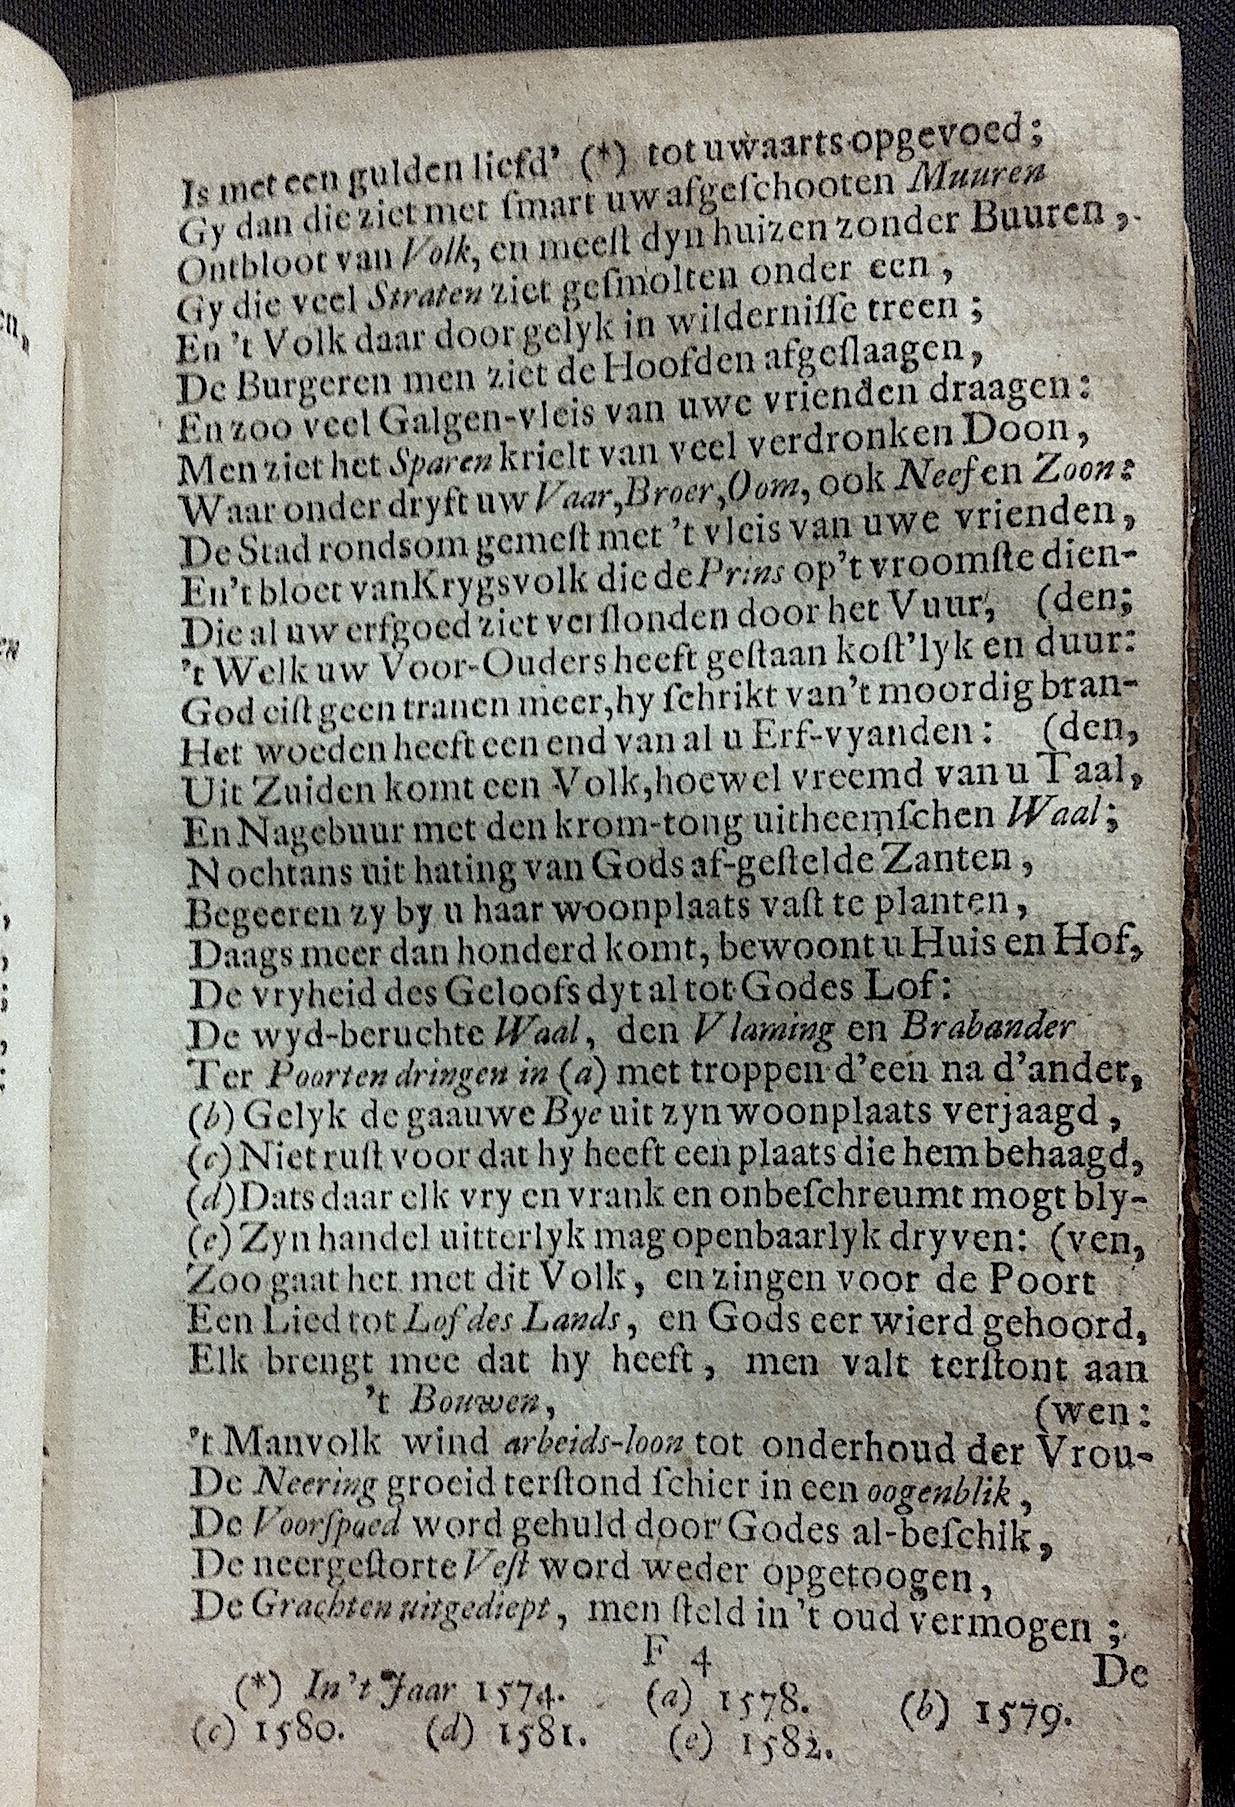 Is met een gulden liefd' (*) tot uwaarts opgevoed;
Gy dan die ziet met ſmart uw afgeſchooten Muuren
Ontbloot van Volk, en meeſt dyn huizen zonder Buuren,
Gy die veel Straten ziet geſmolten onder een,
En 't Volk daar door gelyk in wilderniſſe treen;
De Burgeren men ziet de Hoofden afgeſlaagen,
En zoo veel Galgen-vleis van uwe vrienden draagen:
Men ziet het Sparen krielt van veel verdronken Doon,
Waar onder dryft uw Vaar, Broer, Oom, ook Neef en Zoon:
De Stad rondsom gemeſt met 't vleis van uwe vrienden,
En 't bloet van Krygsvolk die de Prins op 't vroomſte dien-
Die al uw erfgoed ziet verſlonden door het Vuur, (den;
't Welk uw Voor-Ouders heeft geſtaan koſt'lyk en duur:
God eiſt geen tranen meer, hy ſchrikt van 't moordig bran-
Het woeden heeft een end van al u Erf-vyanden: (den,
Uit Zuiden komt een Volk, hoewel vreemd van u Taal,
En Nagebuur met den krom-tong uitheemſchen Waal;
Nochtans uit hating van Gods af-geſtelde Zanten,
Begeeren zy by u haar woonplaats vaſt te planten,
Daags meer dan honderd komt, bewoont u Huis en Hof,
De vryheid des Geloofs dyt al tot Godes Lof:
De wyd-beruchte Waal, den Vlaming en Brabander
Ter Poorten dringen in (a) met troppen d'een na d'ander,
(b) Gelyk de gaauwe Bye uit zyn woonplaats verjaagd,
(c) Niet ruſt voor dat hy heeft een plaats die hem behaagd,
(d) Dats daar elk vry en vrank en onbeſchreumt mogt bly-
(e) Zyn handel uitterlyk mag openbaarlyk dryven: (ven,
Zoo gaat het met dit Volk, en zingen voor de Poort
Een Lied tot Lof des Lands, en Gods eer wierd gehoord,
Elk brengt mee dat hy heeft, men valt terſtont aan
't Bouwen, (wen:
't Manvolk wind arbeids-loon tot onderhoud der Vrou-
De Neering groeid terſtond ſchier in een oogenblik,
De Voorſpoed word gehuld door Godes al-beſchik,
De neergeſtorte Veſt word weder opgetoogen,
De Grachten uitgediept, men ſteld in 't oud vermogen;
F 4
De
(*) In 't Jaar 1574. (a) 1578. (b) 1579.
(c) 1580. (d) 1581. (e) 1582.